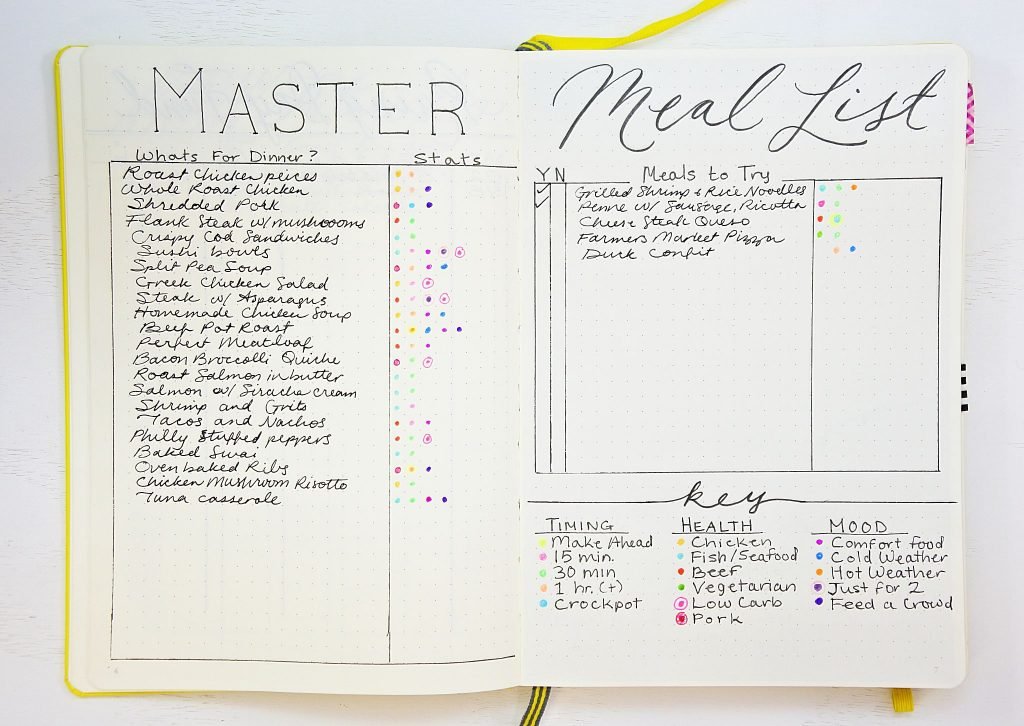 MASTER
Whats For Dinner? Stats
Roast Chicken peices
Whole Roast Chicken
Shredded Pork
Flank Steak w/ mushrooms
Crispy Cod Sandwiches
Sushi bowls
Split Pea Soup
Greek Chicken Salad
Steak w/ Asparagus
Homemade Chicken Soup
Beef Pot Roast
Perfect Meatloaf
Bacon Broccolli Quiche
Roast Salmon in butter
Salmon w/ Siracha cream
Shrimp and Grits
Tacos and Nachos
Philly Stuffed peppers
Baked Swai
Oven baked Ribs
Chicken Mushroom Risotto
Tuna casserole
6
Meal List
Y N Meals to Try
Grilled Shrimp & Rice Noodles
Penne w/ Sausage, Ricotta
Cheese Steak Queso
Farmers Market Pizza
Duck Confit
key
TIMING
Make Ahead
15 min.
30 min
1 hr. (+)
Crockpot
HEALTH
Chicken
Fish/Seafood
Beef
Vegetarian
Low Carb
Pork
MOOD
Comfort food
Cold Weather
Hot Weather
Just for 2
Feed a Crowd
7